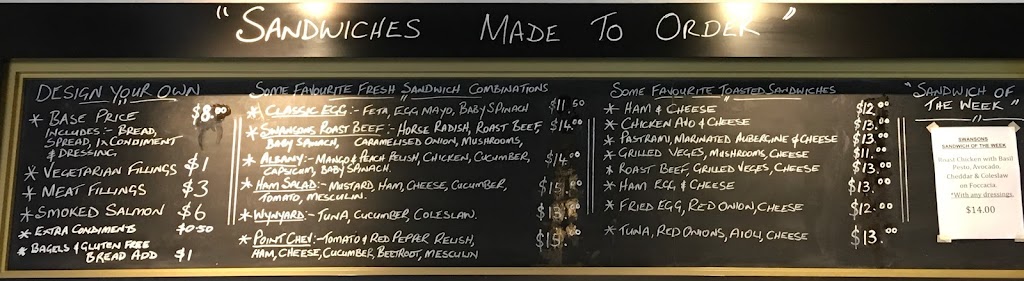 "SANDWICHES MADE TO ORDER"
DESIGN YOUR OWN
* BASE PRICE $8.00
INCLUDES:- BREAD,
SPREAD, 1x CONDIMENT
& DRESSING
* VEGETARIAN FILLINGS $1
* MEAT FILLINGS $3
* SMOKED SALMON $6
* EXTRA CONDIMENTS $0.50
* BAGELS & GLUTEN FREE
BREAD ADD $1
SOME FAVOURITE FRESH SANDWICH COMBINATIONS
* CLASSIC EGG:- FETA, EGG MAYO, BABY SPINACH $11.50
* SWANSONS ROAST BEEF:- HORSE RADISH, ROAST BEEF, $14.00
BABY SPINACH, CARAMELISED ONION, MUSHROOMS,
* ALBANY:- MANGO & PEACH RELISH, CHICKEN, CUCUMBER, $14.00
CAPSICUM, BABY SPINACH.
* HAM SALAD:- MUSTARD, HAM, CHEESE, CUCUMBER,
TOMATO, MESCULIN.
* WYNYARD:- TUNA, CUCUMBER, COLESLAW.
* POINT CHEV:- TOMATO & RED PEPPER RELISH,
HAM, CHEESE, CUCUMBER, BEETROOT, MESCULIN
SOME FAVOURITE TOASTED SANDWICHES
* HAM & CHEESE $12.00
* CHICKEN AIO & CHEESE $13.00
* PASTRAMI, MARINATED AUBERGINE & CHEESE $13.00
* GRILLED VEGES, MUSHROOMS, CHEESE $11.00
* ROAST BEEF, GRILLED VEGES, CHEESE $13.00
* HAM EGG, & CHEESE $13.00
* FRIED EGG, RED ONION, CHEESE $12.00
* TUNA, RED ONIONS, AIOLI, CHEESE $13.00
"SANDWICH OF
THE WEEK"
SWANSONS
SANDWICH OF THE WEEK
Roast Chicken with Basil
Pesto, Avocado,
Cheddar & Coleslaw
on Foccacia.
*With any dressings
$14.00